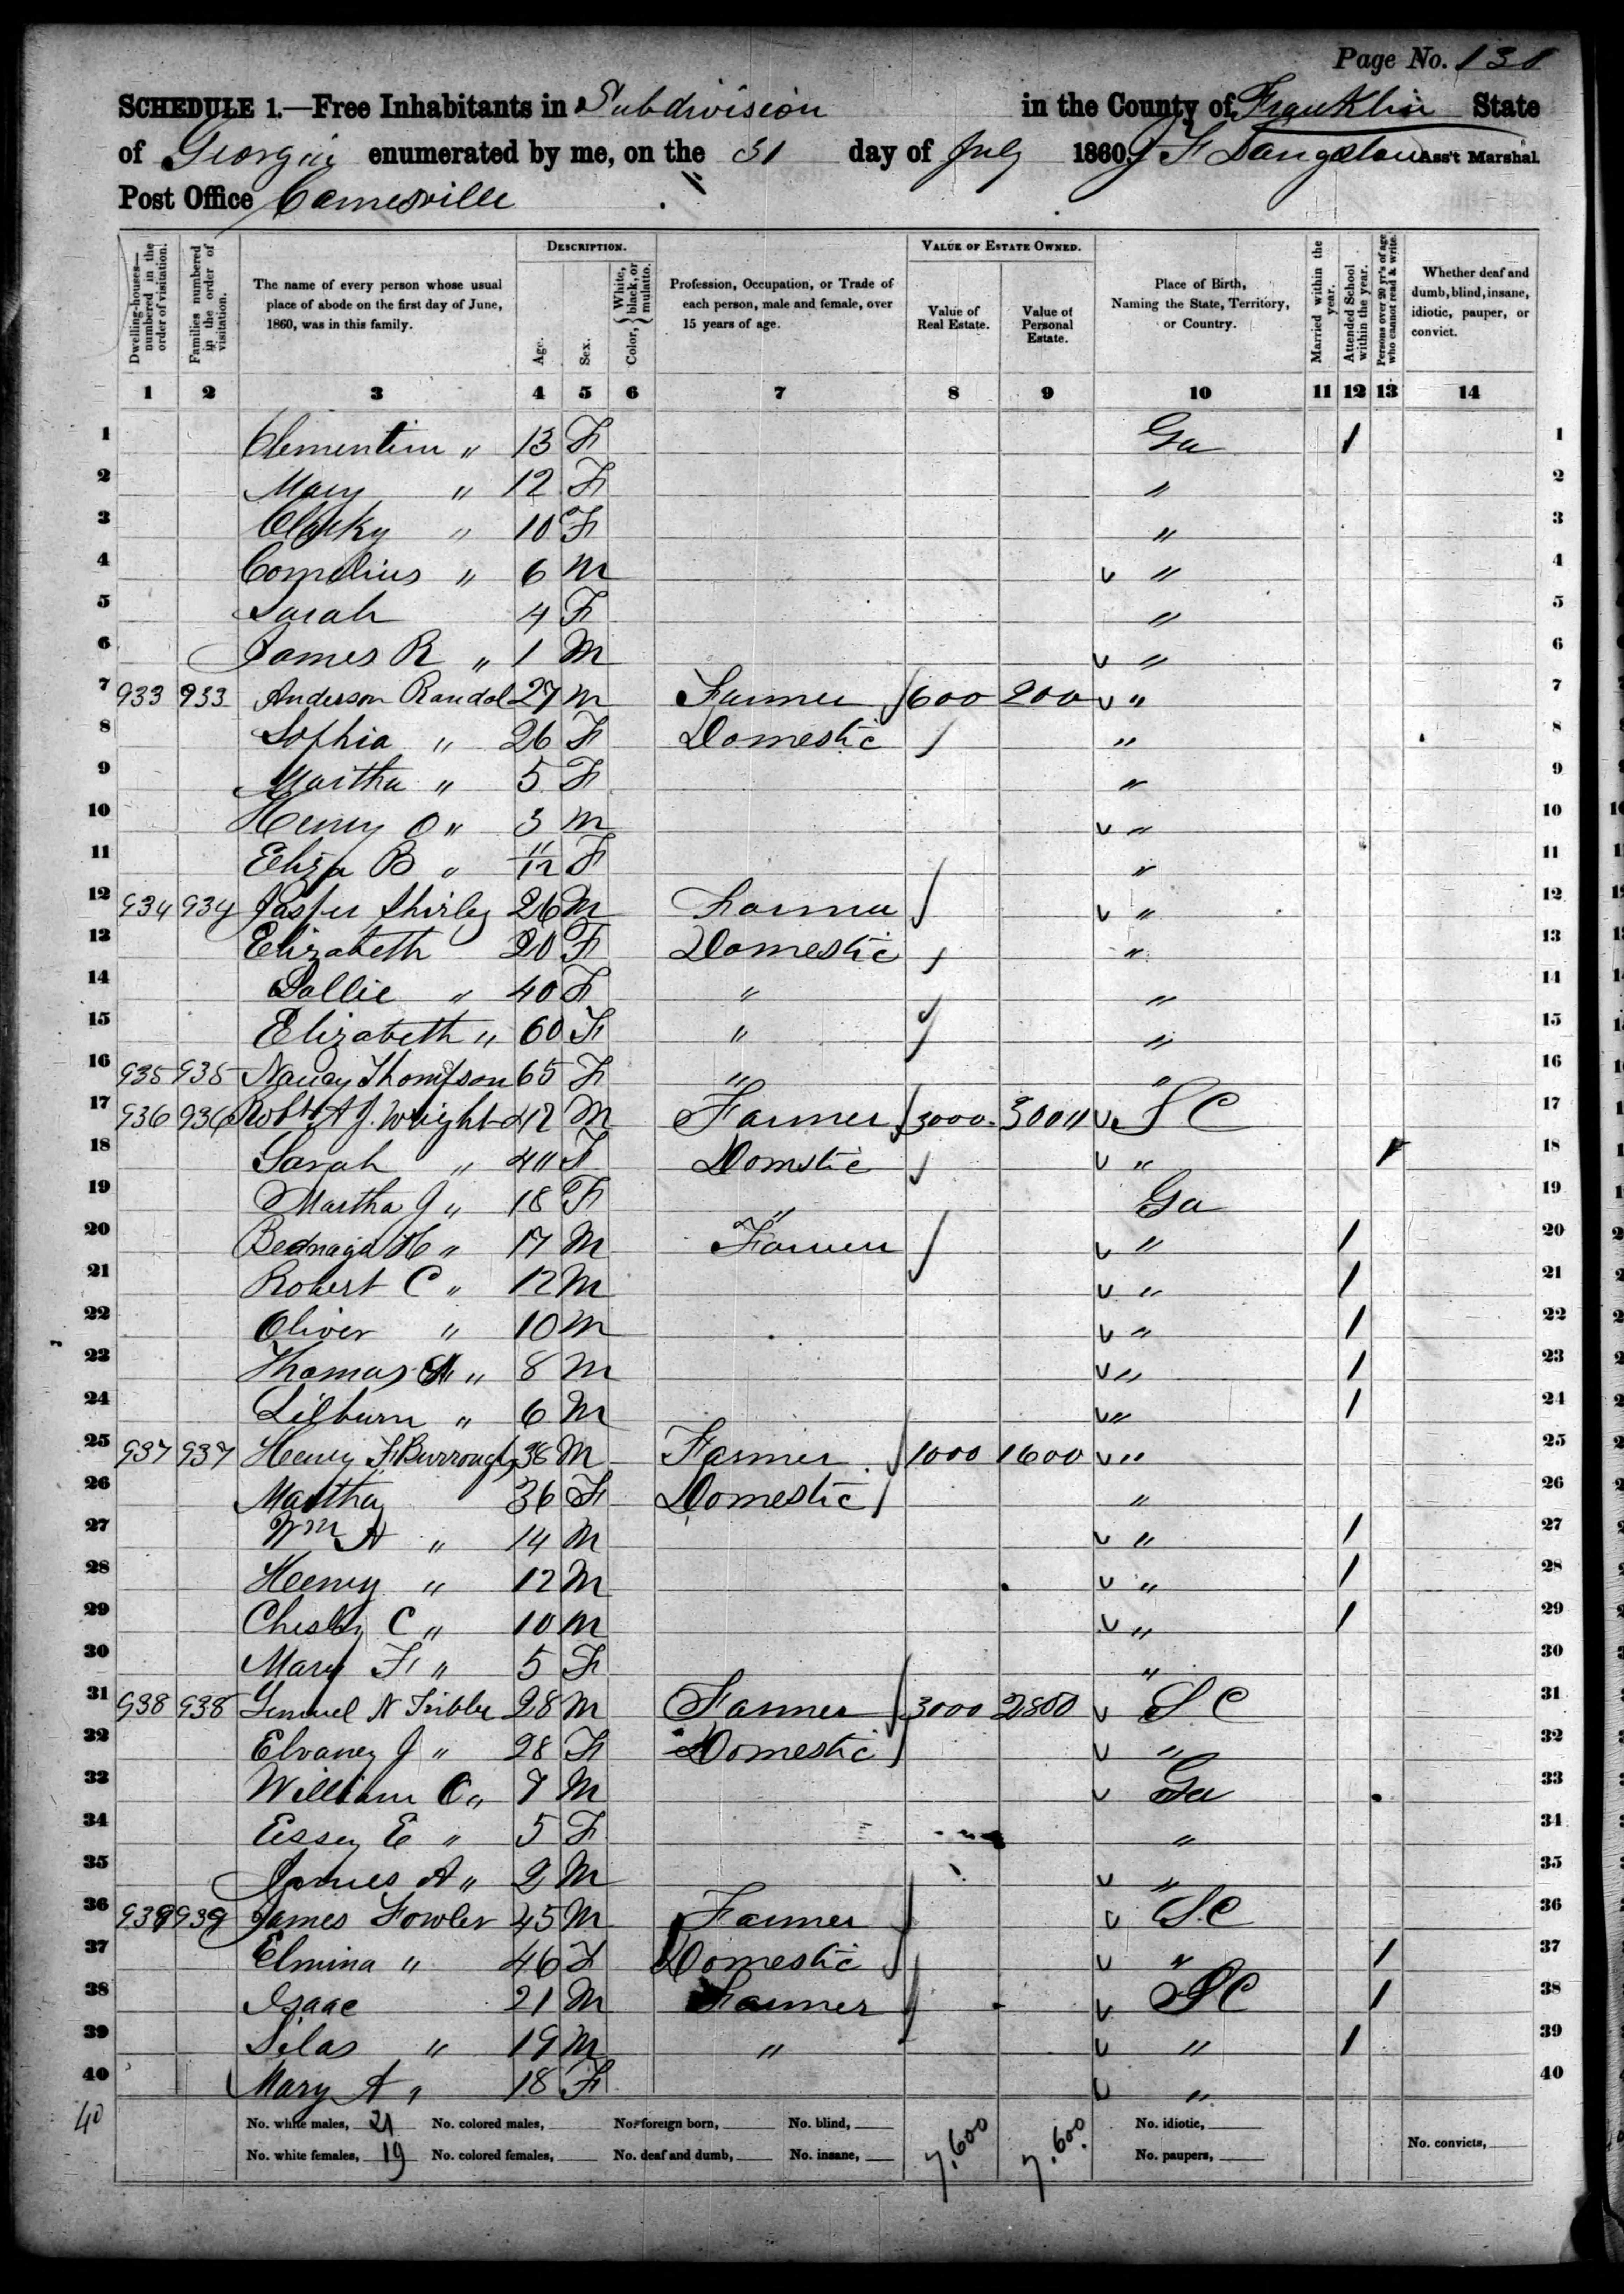 Page No. 131
SCHEDULE 1.—Free Inhabitants in Subdivision in the County of Franklin State
of Georgia enumerated by me, on the 31 day of July 1860. Ass't Marshal.
Post Office Carnesville
Dwelling-houses—numbered in the order of visitation. Families numbered in the order of visitation. The name of every person whose usual place of abode on the first day of June, 1860, was in this family. DESCRIPTION. Age. Sex. Color, { White, black, or mulatto. Profession, Occupation, or Trade of each person, male and female, over 15 years of age. VALUE OF ESTATE OWNED. Value of Real Estate. Value of Personal Estate. Place of Birth, Naming the State, Territory, or Country. Married within the year. Attended School within the year. Persons over 20 yr's of age who cannot read & write. Whether deaf and dumb, blind, insane, idiotic, pauper, or convict.
1 2 3 4 5 6 7 8 9 10 11 12 13 14
1 Clementine " 13 F Ga / 1
2 Mary " 12 F " 2
3 " 10 F " 3
4 Cornelius " 6 M " 4
5 Sarah 4 F " 5
6 James R " 1 M " 6
7 933 933 Anderson Randol 27 M Farmer 600 200 " 7
8 Sophia " 26 F Domestic " 8
9 Martha " 5 F " 9
10 Henry O " 3 M " 10
11 Eliza B " 11/12 F " 11
12 934 934 Jasper Shirley 26 M Farmer " 12
13 Elizabeth 20 F Domestic " 13
14 Sallie " 40 F " " 14
15 Elizabeth " 60 F " " 15
16 935 935 Nancy Thompson 65 F " " 16
17 936 936 Robt A J. Wright 42 M Farmer 3000 3000 S C 17
18 Sarah " 40 F Domstic " / 18
19 Martha J " 18 F " Ga 19
20 H " 17 M Farmer " / 20
21 Robert C " 12 M " / 21
22 Oliver " 10 M " / 22
23 Thomas " 8 M " / 23
24 Lilburn " 6 M " / 24
25 937 937 Henry F Burroughs 38 M Farmer 1000 1600 " 25
26 Martha 36 F Domestic " 26
27 Wm A " 14 M " / 27
28 Henry " 12 M " / 28
29 Chesley C " 10 M " / 29
30 Mary F " 5 F " 30
31 938 938 Lemuel N Tribble 28 M Farmer 3000 2800 S C 31
32 Elvaney J " 28 F Domestic " 32
33 William O " 7 M Ga 33
34 Essey E " 5 F " 34
35 James A " 2 M " 35
36 939 939 James Fowler 45 M Farmer S.C 36
37 Elmina " 46 F Domestic " / 37
38 Isaac 21 M Farmer S C / 38
39 Silas " 19 M " " / 39
40 Mary A " 18 F " 40
40 No. white males, 21 No. colored males, No. foreign born, No. blind, 7,600 7,600 No. idiotic,
No. white females, 19 No. colored females, No. deaf and dumb, No. insane, No. paupers, No. convicts,